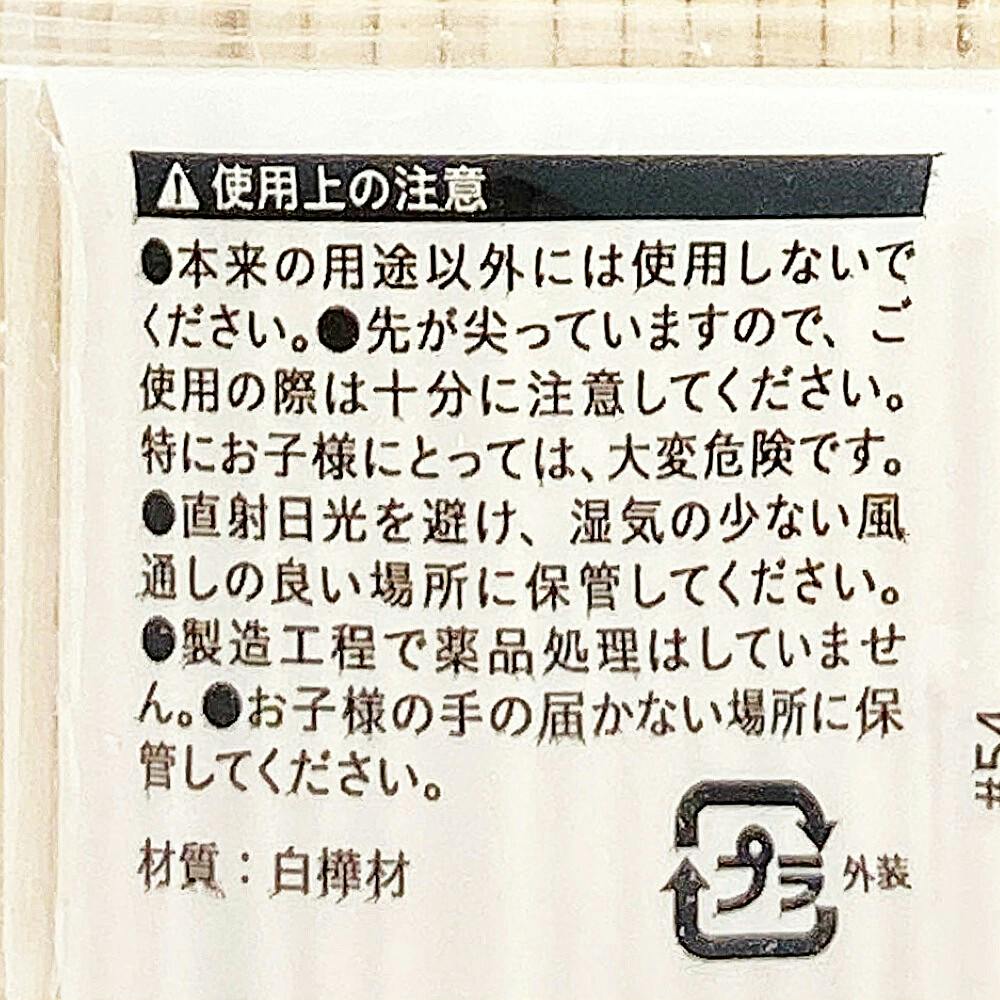 ⚠使用上の注意
●本来の用途以外には使用しないで
ください。●先が尖っていますので、ご
使用の際は十分に注意してください。
特にお子様にとっては、大変危険です。
●直射日光を避け、湿気の少ない風
通しの良い場所に保管してください。
●製造工程で薬品処理はしていませ
ん。●お子様の手の届かない場所に保
管してください。
材質：白樺材
プラ 外装
#54